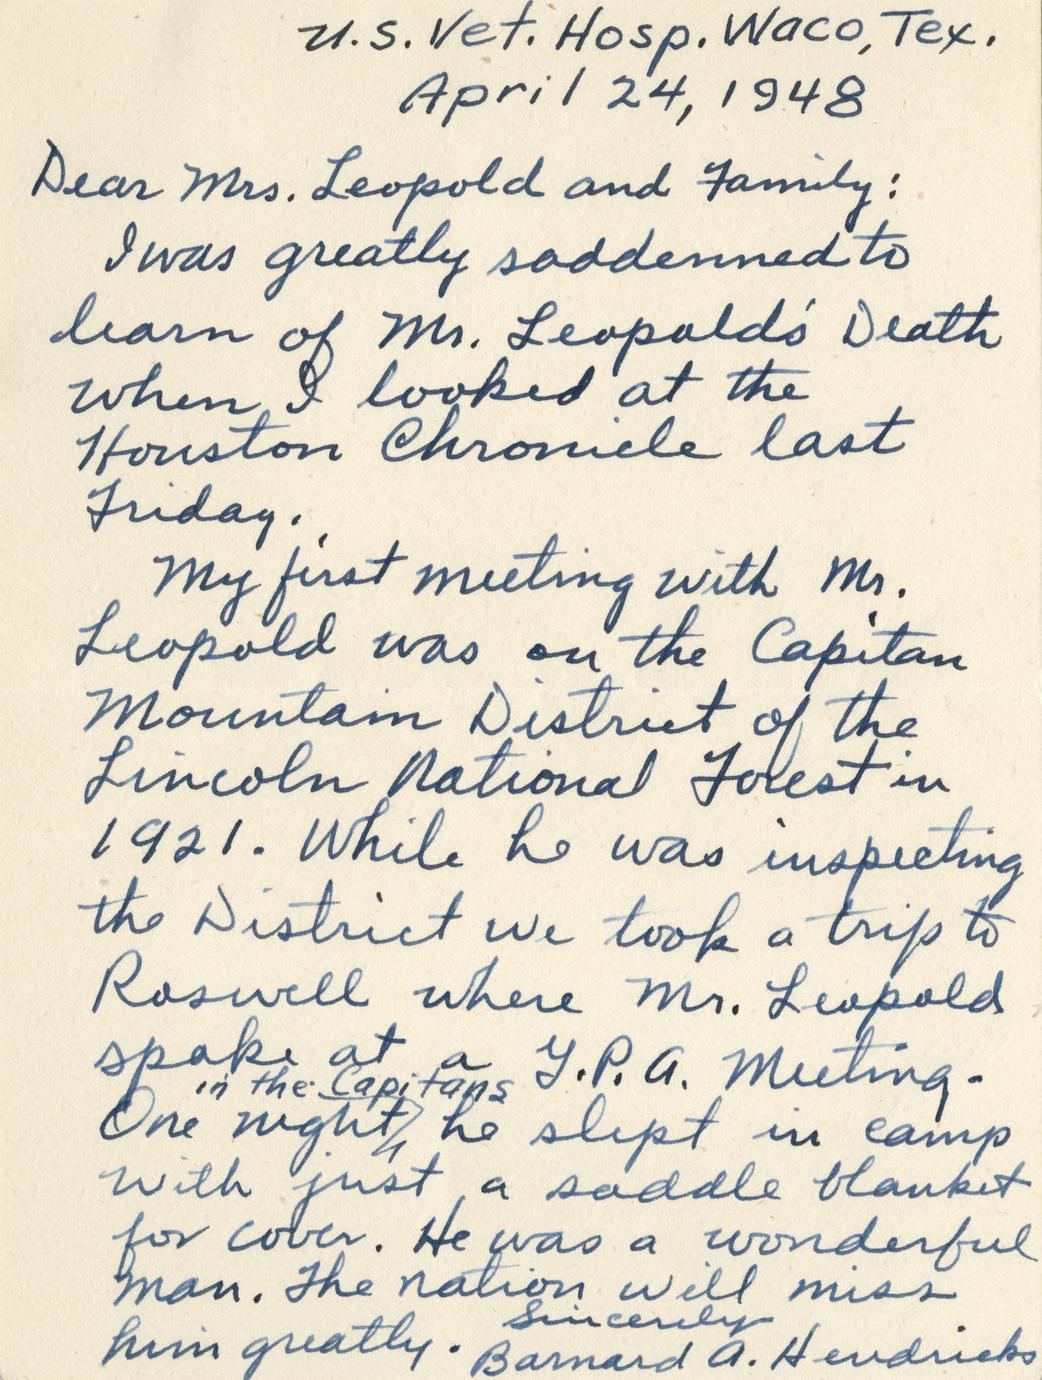 U.S. Vet. Hosp. Waco, Tex.
April 24, 1948
Dear Mrs. Leopold and Family:
I was greatly saddenned to
learn of Mr. Leopold's Death
when I looked at the
Houston Chronicle last
Friday.
My first meeting with Mr.
Leopold was on the Capitan
Mountain District of the
Lincoln National Forest in
1921. While he was inspecting
the District we took a trip to
Roswell where Mr. Leopold
spoke at a G.P.A. Meeting.
in the Capitans
One night, he slept in camp
with just a saddle blanket
for cover. He was a wonderful
man. The nation will miss
him greatly. Sincerely
Barnard A. Hendricks